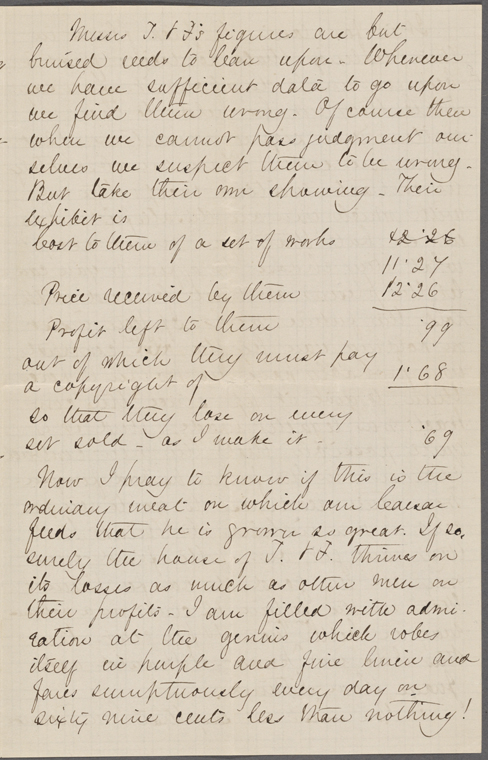 Messrs T. & F's figures are but
bruised reeds to lean upon - Whenever
we have sufficient data to go upon
we find them wrong. Of course then
when we cannot pass judgment our-
selves we suspect them to be wrong -
But take their own showing - Their
exhibit is
Cost to them of a set of works 12.26
11.27
Price received by them 12.26
Profit left to them .99
out of which they must pay
a copyright of 1.68
so that they lose on every
set sold - as I make it - .69
Now I pray to know if this is the
ordinary meat on which our Caesar
feeds that he is grown so great. If so,
surely the house of T. & F. thrives on
its losses as much as other men on
their profits - I am filled with admi-
ration at the genius which robes
itself in purple and fine linen and
fares sumptuously every day on
sixty nine cents less than nothing!